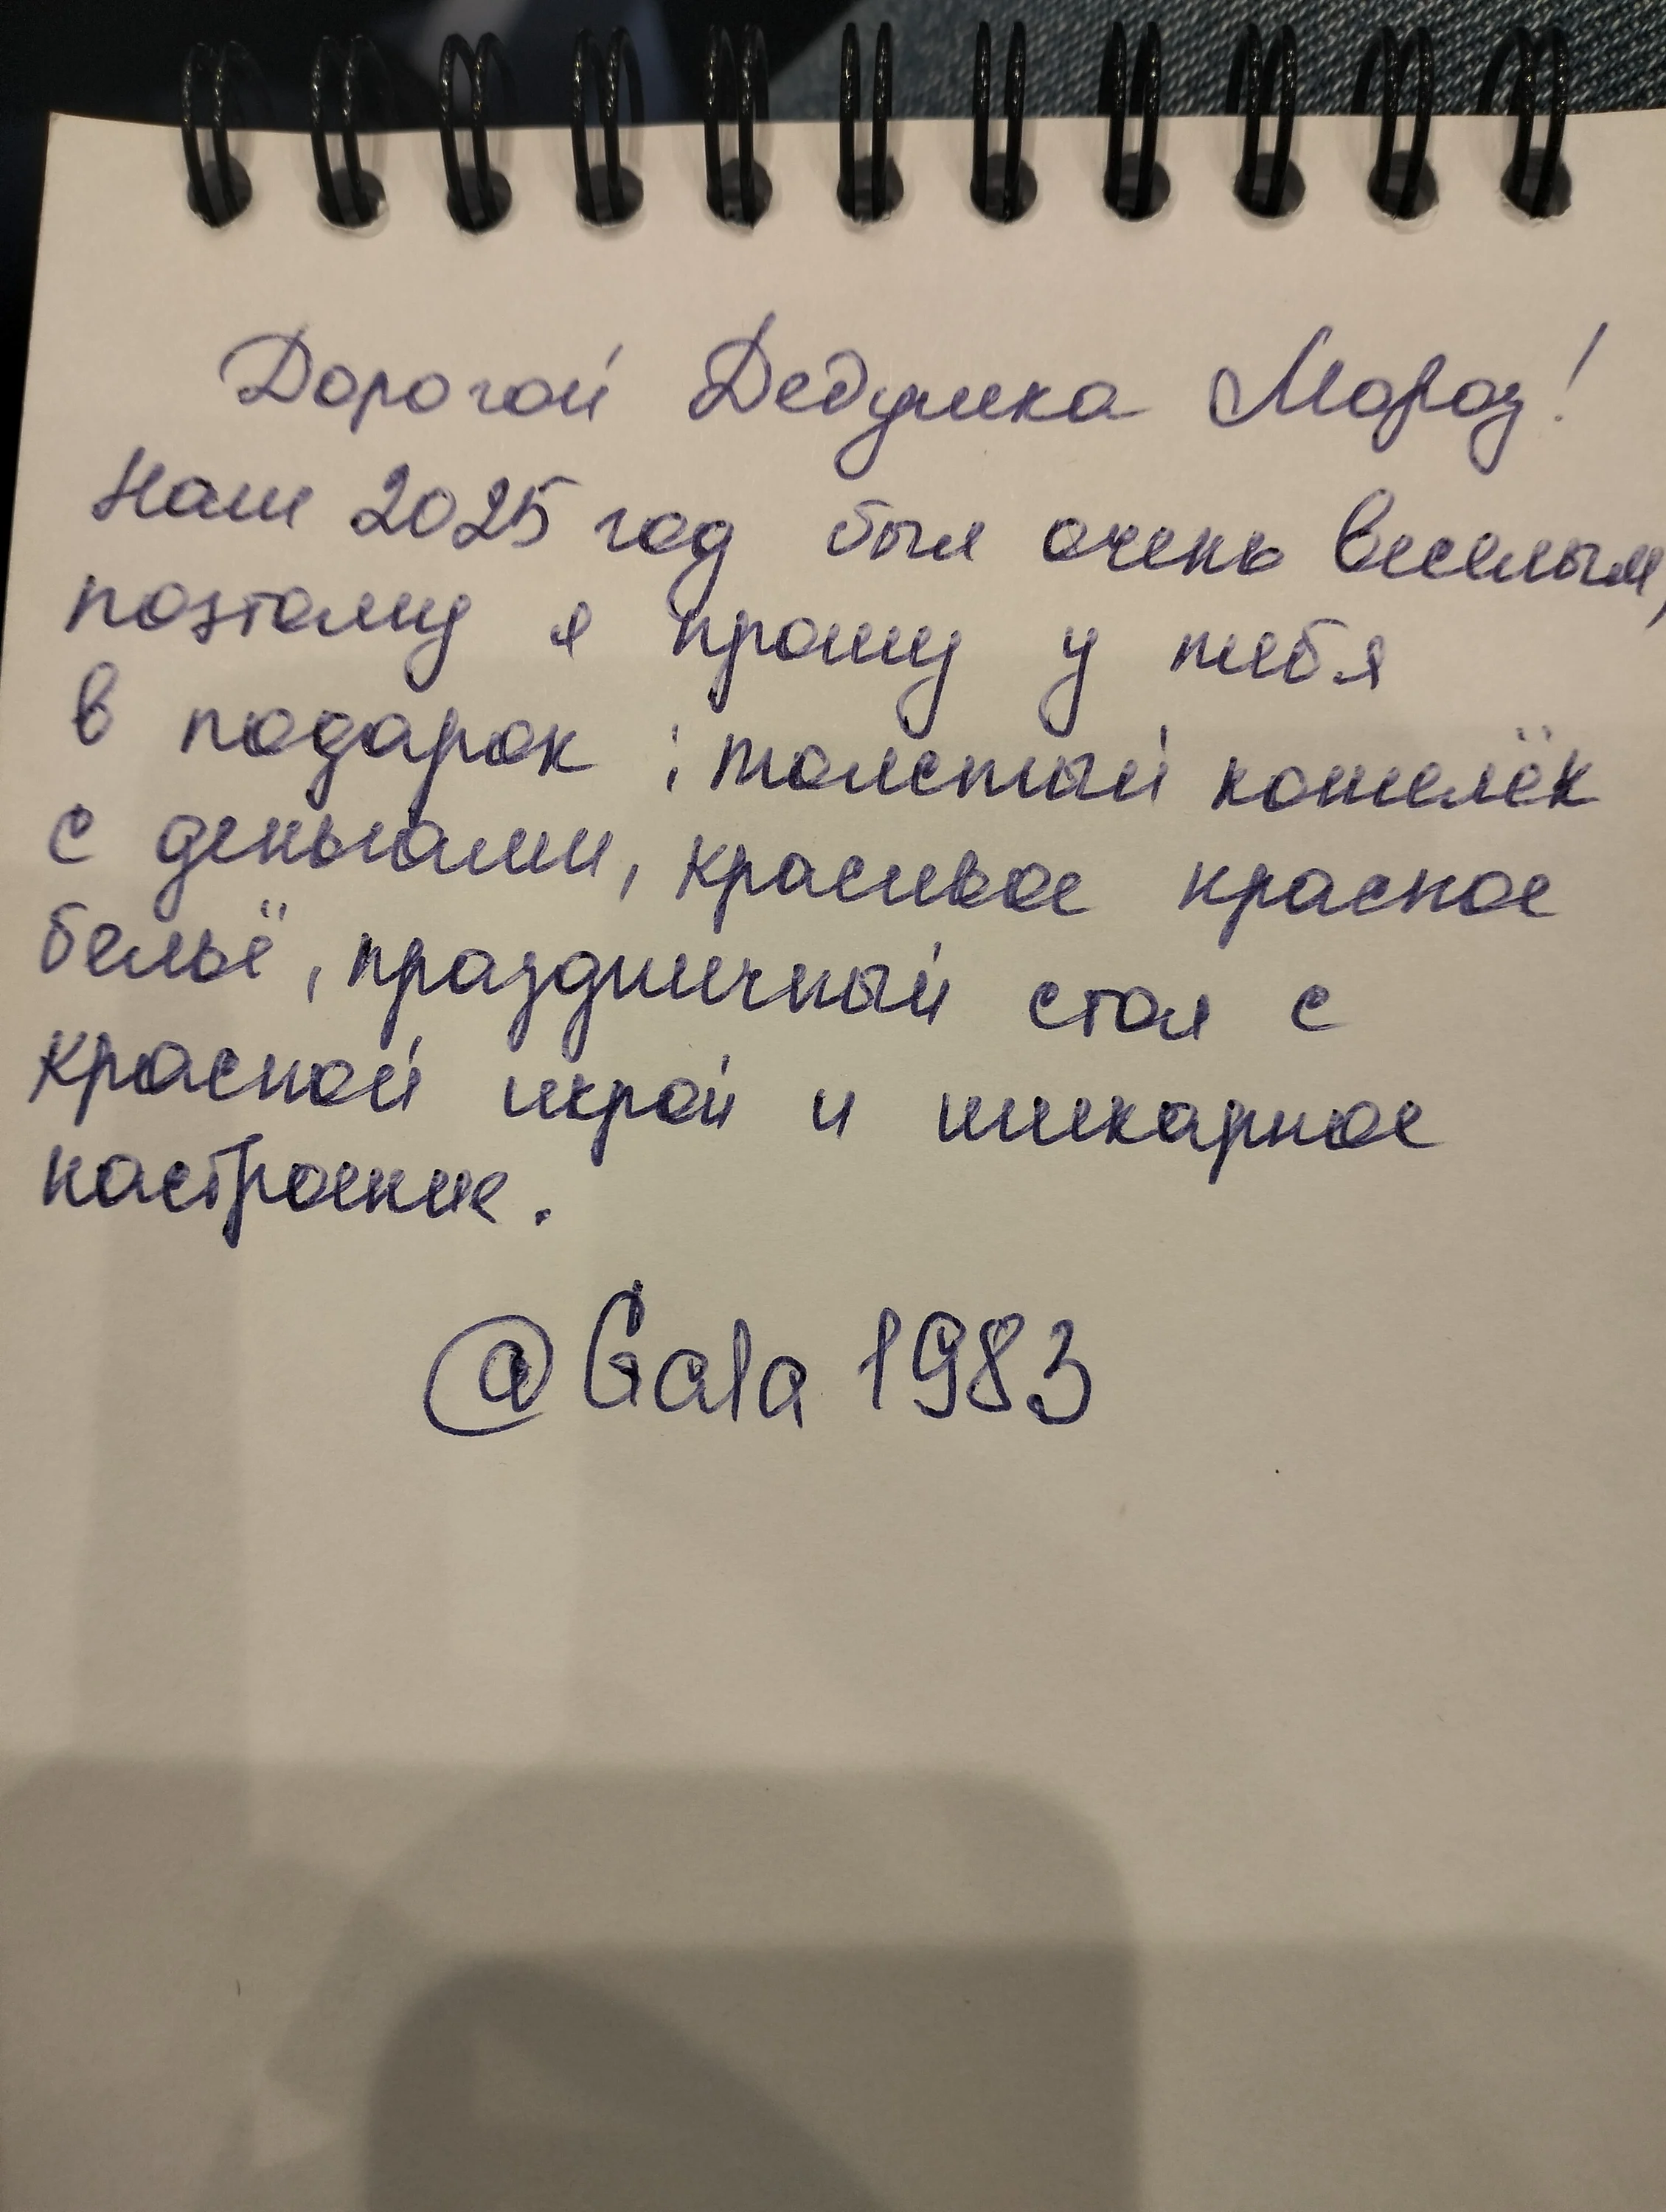 Дорогой Дедушка Мороз!
Наш 2025 год был очень веселым,
поэтому я прошу у тебя
в подарок : толстый кошелёк
с деньгами, красивое красное
бельё, праздничный стол с
красной икрой и шикарное
настроение.
@Gala 1983